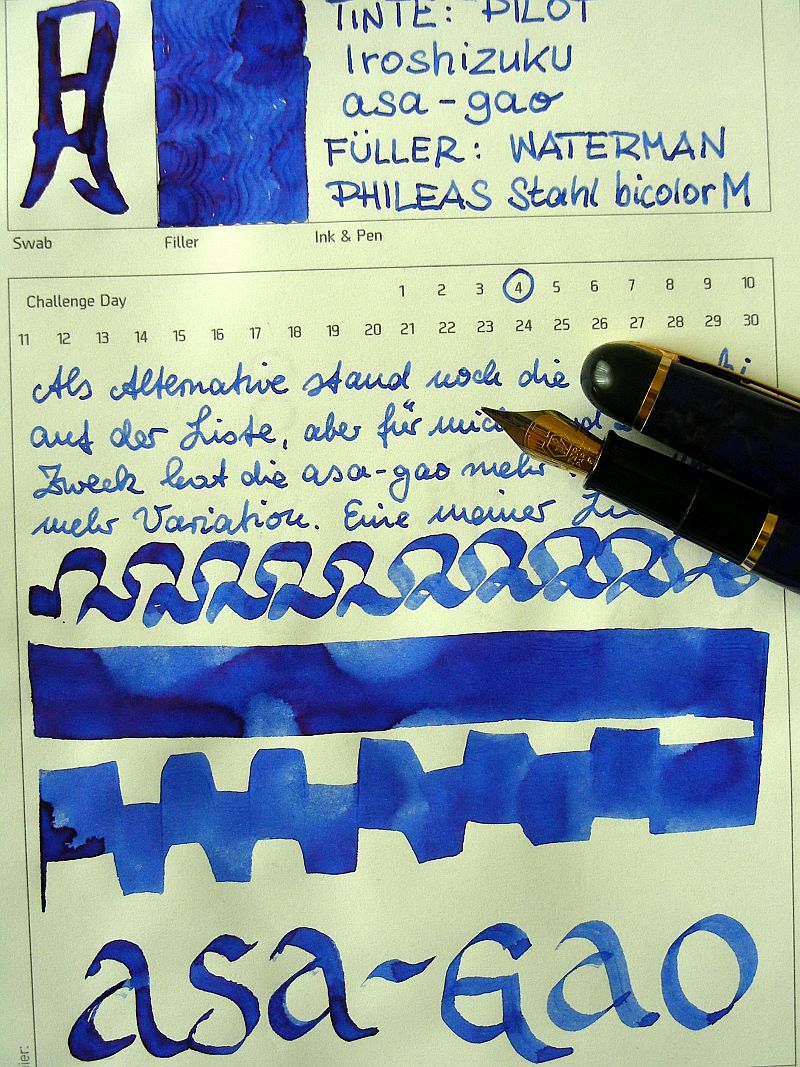 TINTE: PILOT
Iroshizuku
asa-gao
FÜLLER: WATERMAN
PHILEAS Stahl bicolor M
Swab
Filler
Ink & Pen
Challenge Day
1 2 3 4 5 6 7 8 9 10
11 12 13 14 15 16 17 18 19 20 21 22 23 24 25 26 27 28 29 30
Als Alternative stand noch die
auf der Liste, aber für mich
Zweck hat die asa-gao mehr
mehr Variation. Eine meiner
asa-Gao